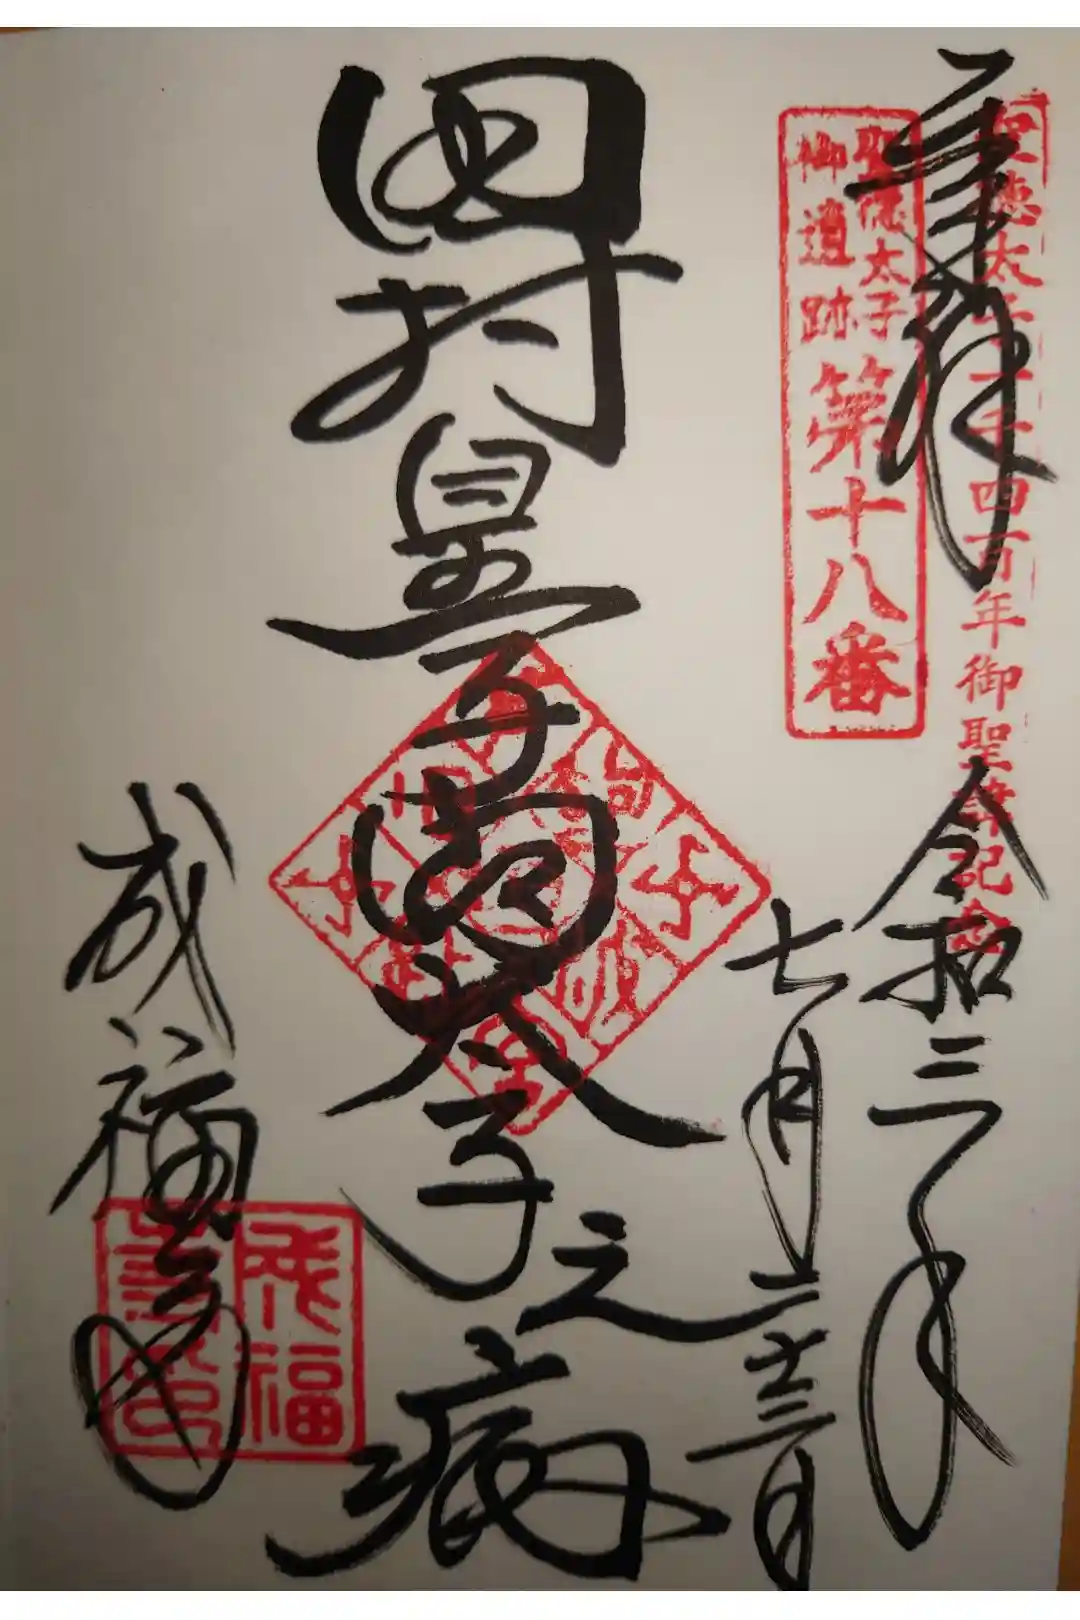 奉拝
聖徳太子一千四百年御聖諱記念
聖徳太子
御遺跡
第十八番
令和三年
七月二十三日
田村皇子問太子之病
成福寺
成福
寺印